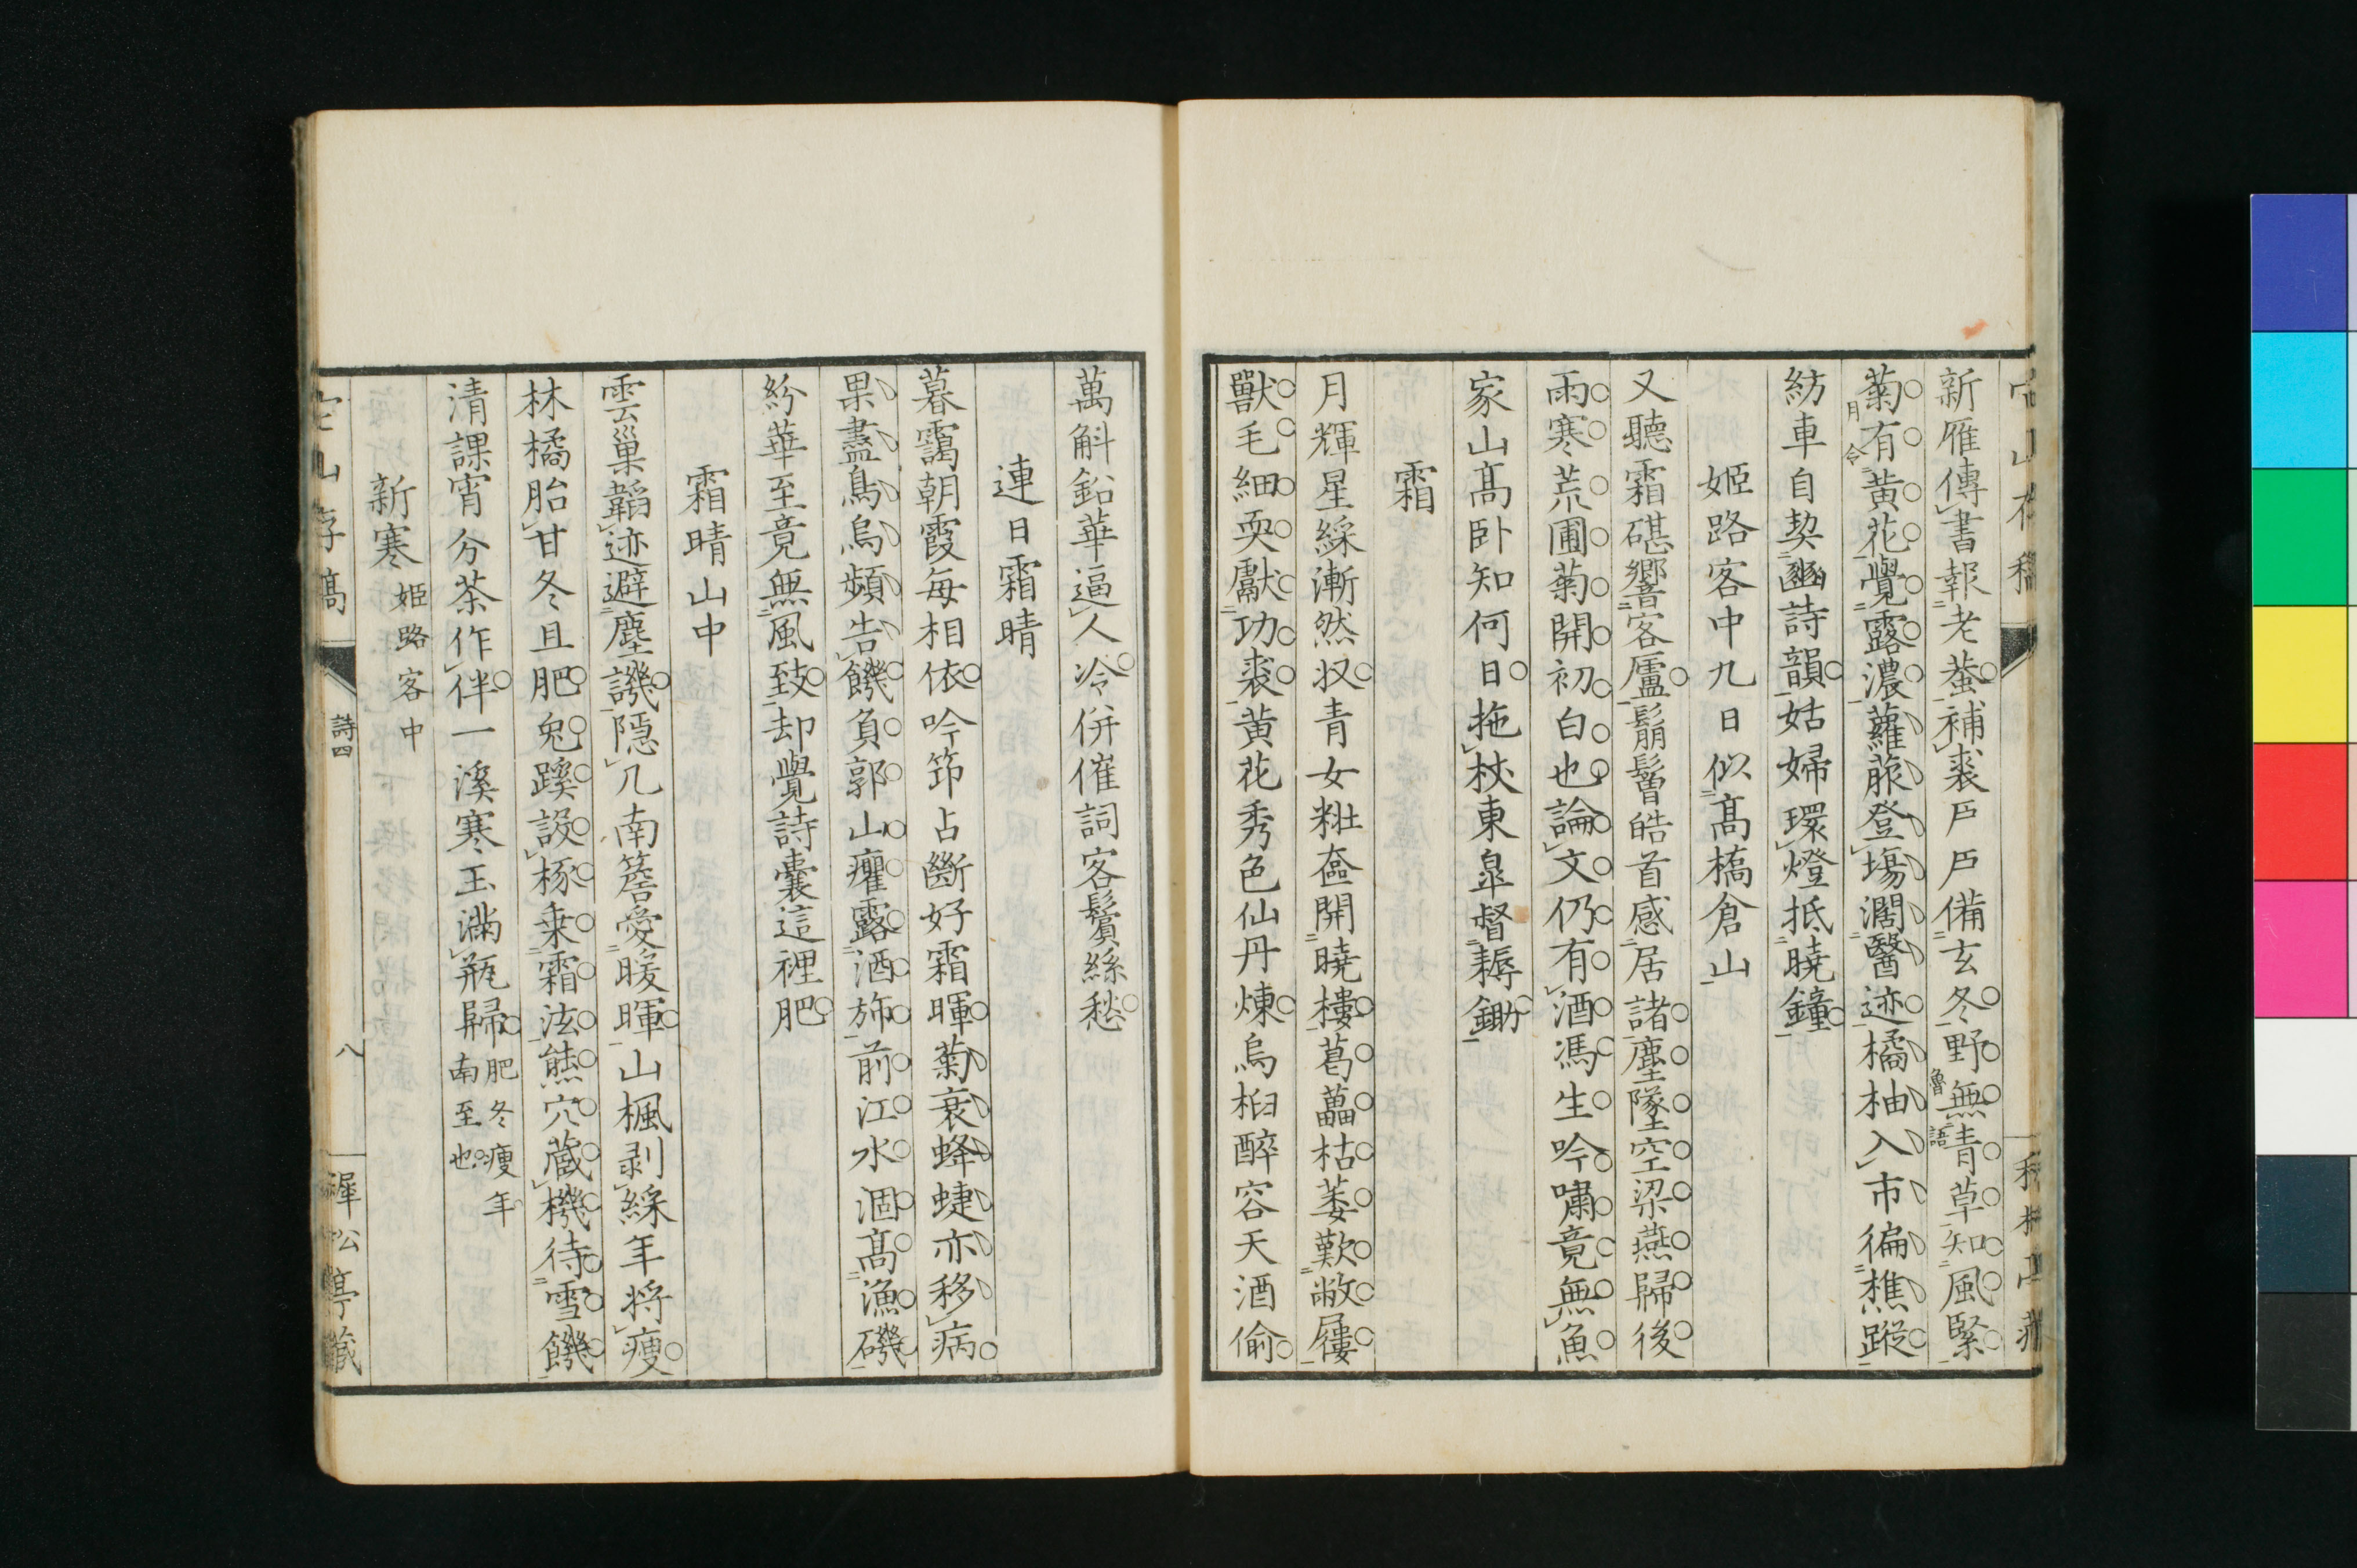 新雁傳書報老蛬補裘戸戸備玄冬野無青草知風緊
魯語
菊有黄花覺露濃蘿蔔登場濶醫迹橘柚入市徧樵蹤
月令
紡車自契豳詩韻姑婦環燈抵曉鐘
姫路客中九日似髙橋倉山
又聽霜碪響客廬鬅鬙皓首感居諸塵墜空梁燕歸後
雨寒荒圃菊開初白也論文仍有酒馮生吟嘯竟無魚
家山髙卧知何日拖杖東皐督耨鋤
霜
月輝星綵漸然収青女粧奩開曉樓葛藟枯萎歎敝屨
獸毛細耎獻功裘黄花秀色仙丹煉烏桕醉容天酒偷
萬斛鉛華逼人冷併催詞客鬢絲愁
連日霜晴
暮靄朝霞每相依吟笻占斷好霜暉菊衰蜂蜨亦移病
果盡鳥烏頻告饑負郭山癯露酒斾前江水涸髙漁磯
紛華至竟無風致却覺詩囊這裡肥
霜晴山中
雲巢韜迹避塵譏隠几南簷愛暖暉山楓剥綵年将瘦
林橘胎甘冬且肥兔蹊設椓乗霜法熊穴藏機待雪饑
清課宵分茶作伴一溪寒玉滿瓶歸
肥冬瘦年
南至也
新寒 姫路客中
詩四
八
犀松亭藏